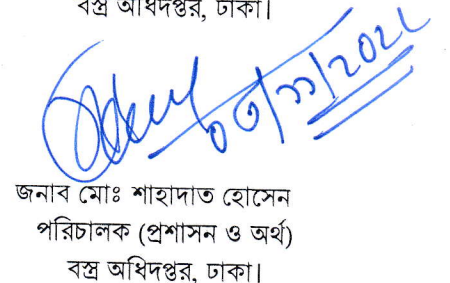 বস্ত্র অধিদপ্তর, ঢাকা।
জনাব মোঃ শাহাদাত হোসেন
পরিচালক (প্রশাসন ও অর্থ)
বস্ত্র অধিদপ্তর, ঢাকা।